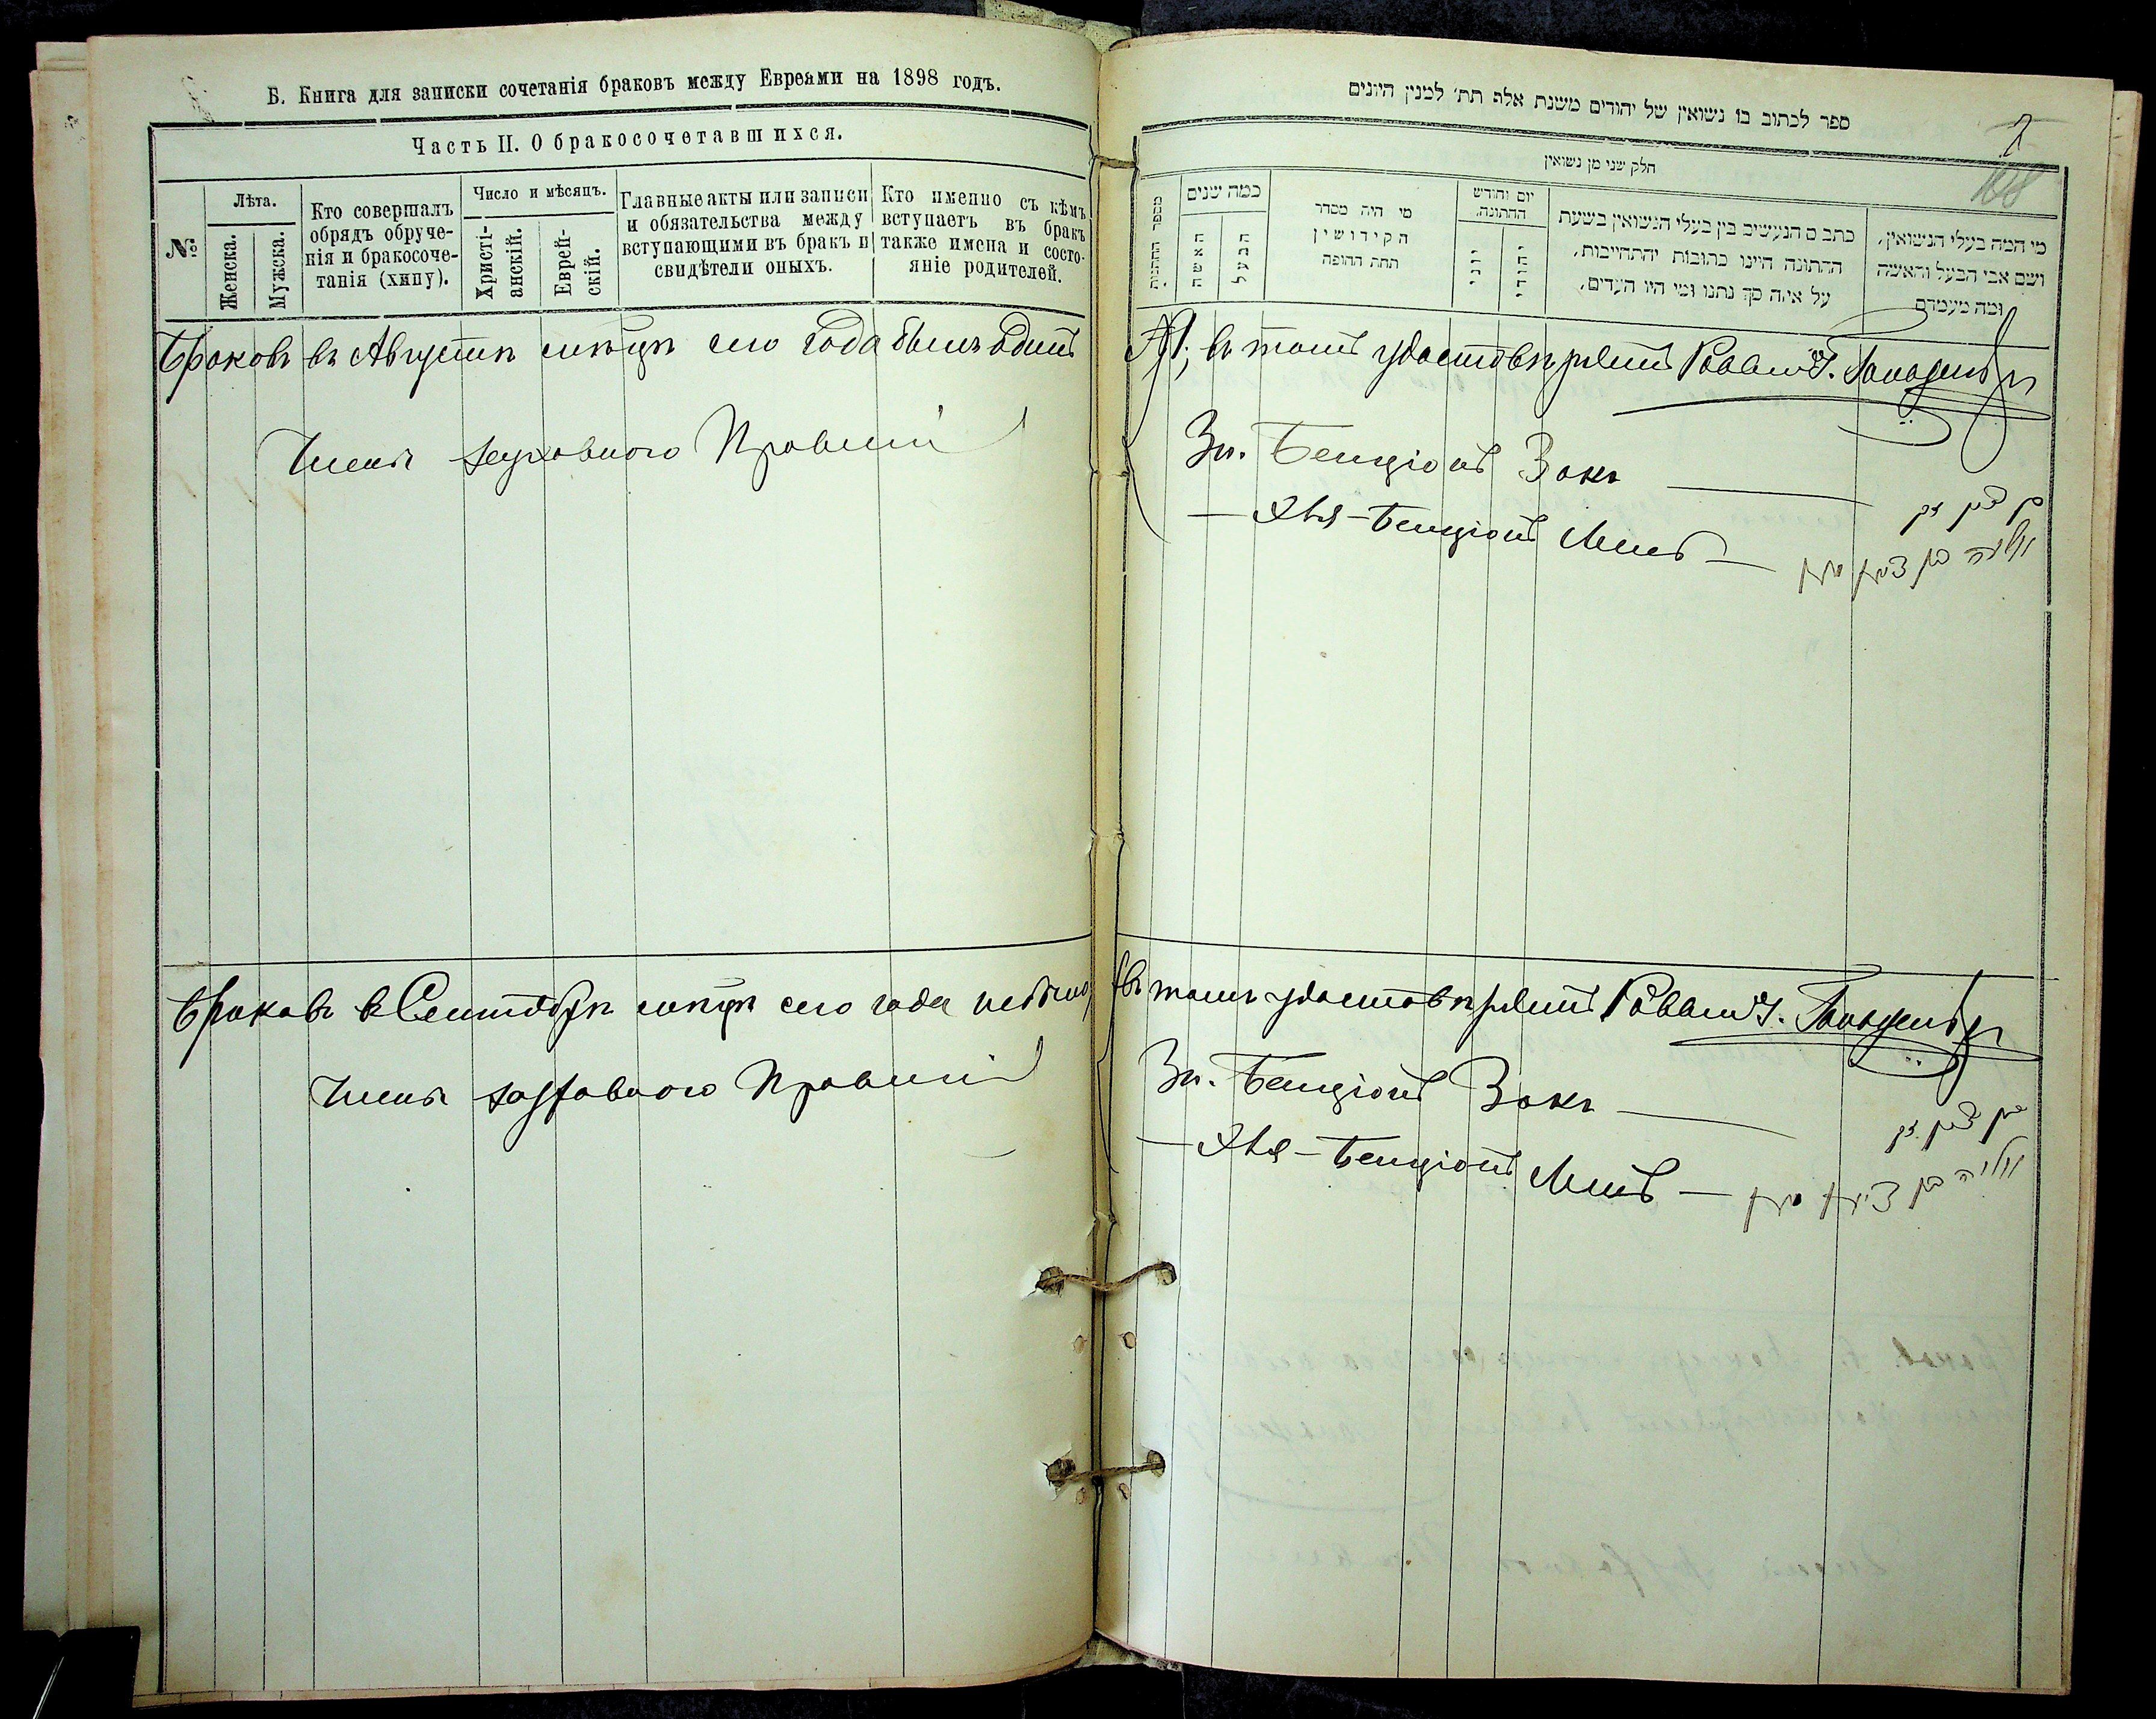 Б. Книга для записки сочетанія браковъ между Евреями на 1898 годъ.
Часть II. О бракосочетавшихся.
№
Лѣта.
Женска.
Мужска.
Кто совершалъ
обрядъ обруче-
нія и бракосоче-
танія (хипу).
Число и мѣсяцъ.
Христі-
анскій.
Еврей-
скій.
Главные акты или записи
и обязательства между
вступающими въ бракъ и
свидѣтели оныхъ.
Кто именно съ кѣмъ
вступаетъ въ бракъ
также имена и состо-
яніе родителей.
Браковъ въ Августѣ мѣсцѣ сего года былъ Одинъ
Члены духовного Правленія
Браковъ въ Сентябрѣ мѣсцѣ сего года небыло
Члены духовного Правленія
ספר לכתוב בו נשואין של יהודים משנת אלף תת׳ למנין היונים
2
168
חלק שני מן נשואין
מספר החתונות
כמה שנים
האשה
הבעל
מי היה מסדר
הקידושין
תחת החופה
יום וחודש
החתונה.
יוני
יהודי
כתבים הנעשים בין בעלי הנשואין בשעת
החתונה היינו כתובות והתחייבות,
על איזה סך נתנו ומי היו העדים,
מי המה בעלי הנשואין,
ושם אבי הבעל והאשה
ומה מעמדם
№1; въ томъ удостовѣряетъ Раввинъ
Зн. Бенціонъ Закъ
בן ציון זק
— Хвя-Бенціонъ
בן ציון
въ томъ удостовѣряетъ Раввинъ
Зн. Бенціонъ Закъ
בן ציון זק
— Хвя-Бенціонъ
בן ציון